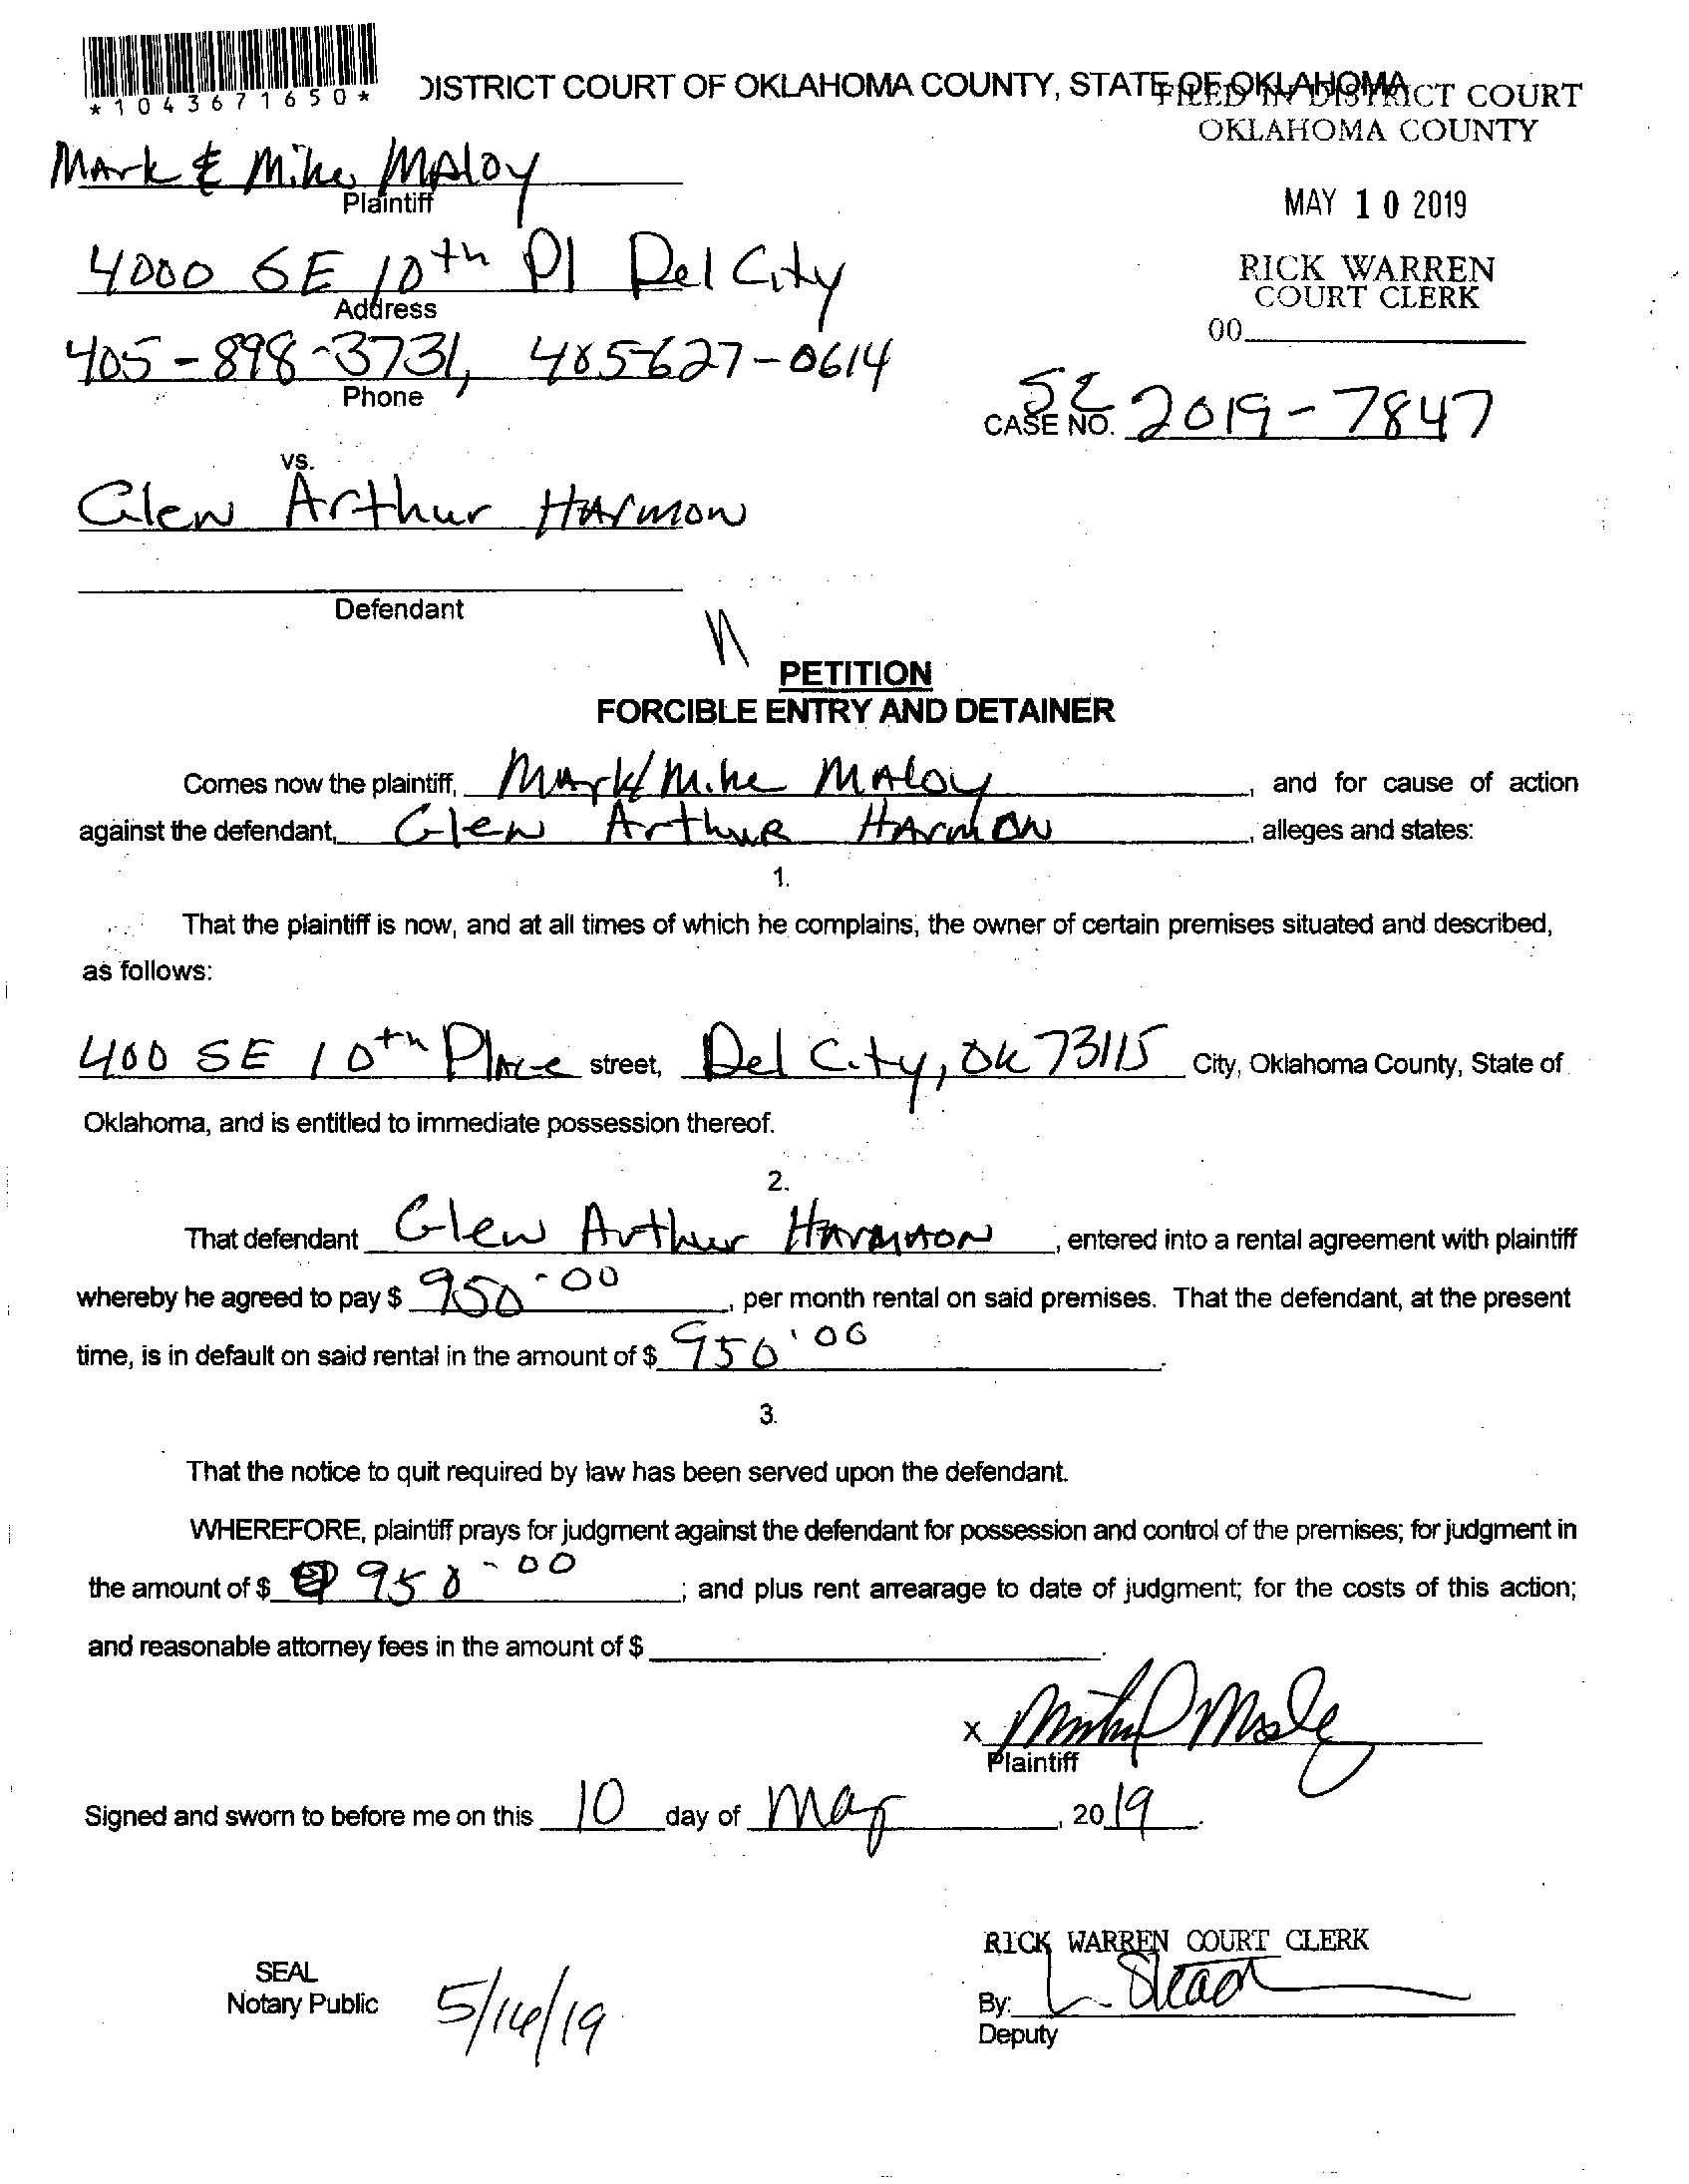 *1043671650*
DISTRICT COURT OF OKLAHOMA COUNTY, STATE OF OKLAHOMA
FILED IN DISTRICT COURT
OKLAHOMA COUNTY
MAY 10 2019
RICK WARREN
COURT CLERK
00
Mark & Mike Maloy
Plaintiff
4000 SE 10th Pl Del City
Address
405-898-3731, 405-627-0614
Phone
CASE NO. SC 2019-7847
vs.
Glen Arthur Harmon
Defendant
PETITION
FORCIBLE ENTRY AND DETAINER
Comes now the plaintiff, Mark/Mike Maloy, and for cause of action
against the defendant, Glen Arthur Harmon, alleges and states:
1.
That the plaintiff is now, and at all times of which he complains, the owner of certain premises situated and described,
as follows:
400 SE 10th Place street, Del City, OK 73115 City, Oklahoma County, State of
Oklahoma, and is entitled to immediate possession thereof.
2.
That defendant Glen Arthur Harmon, entered into a rental agreement with plaintiff
whereby he agreed to pay $ 950-00, per month rental on said premises. That the defendant, at the present
time, is in default on said rental in the amount of $ 950.00.
3.
That the notice to quit required by law has been served upon the defendant.
WHEREFORE, plaintiff prays for judgment against the defendant for possession and control of the premises; for judgment in
the amount of $ 950-00; and plus rent arrearage to date of judgment; for the costs of this action;
and reasonable attorney fees in the amount of $ .
X
Plaintiff
Signed and sworn to before me on this 10 day of May, 2019.
RICK WARREN COURT CLERK
SEAL
Notary Public
By:
Deputy